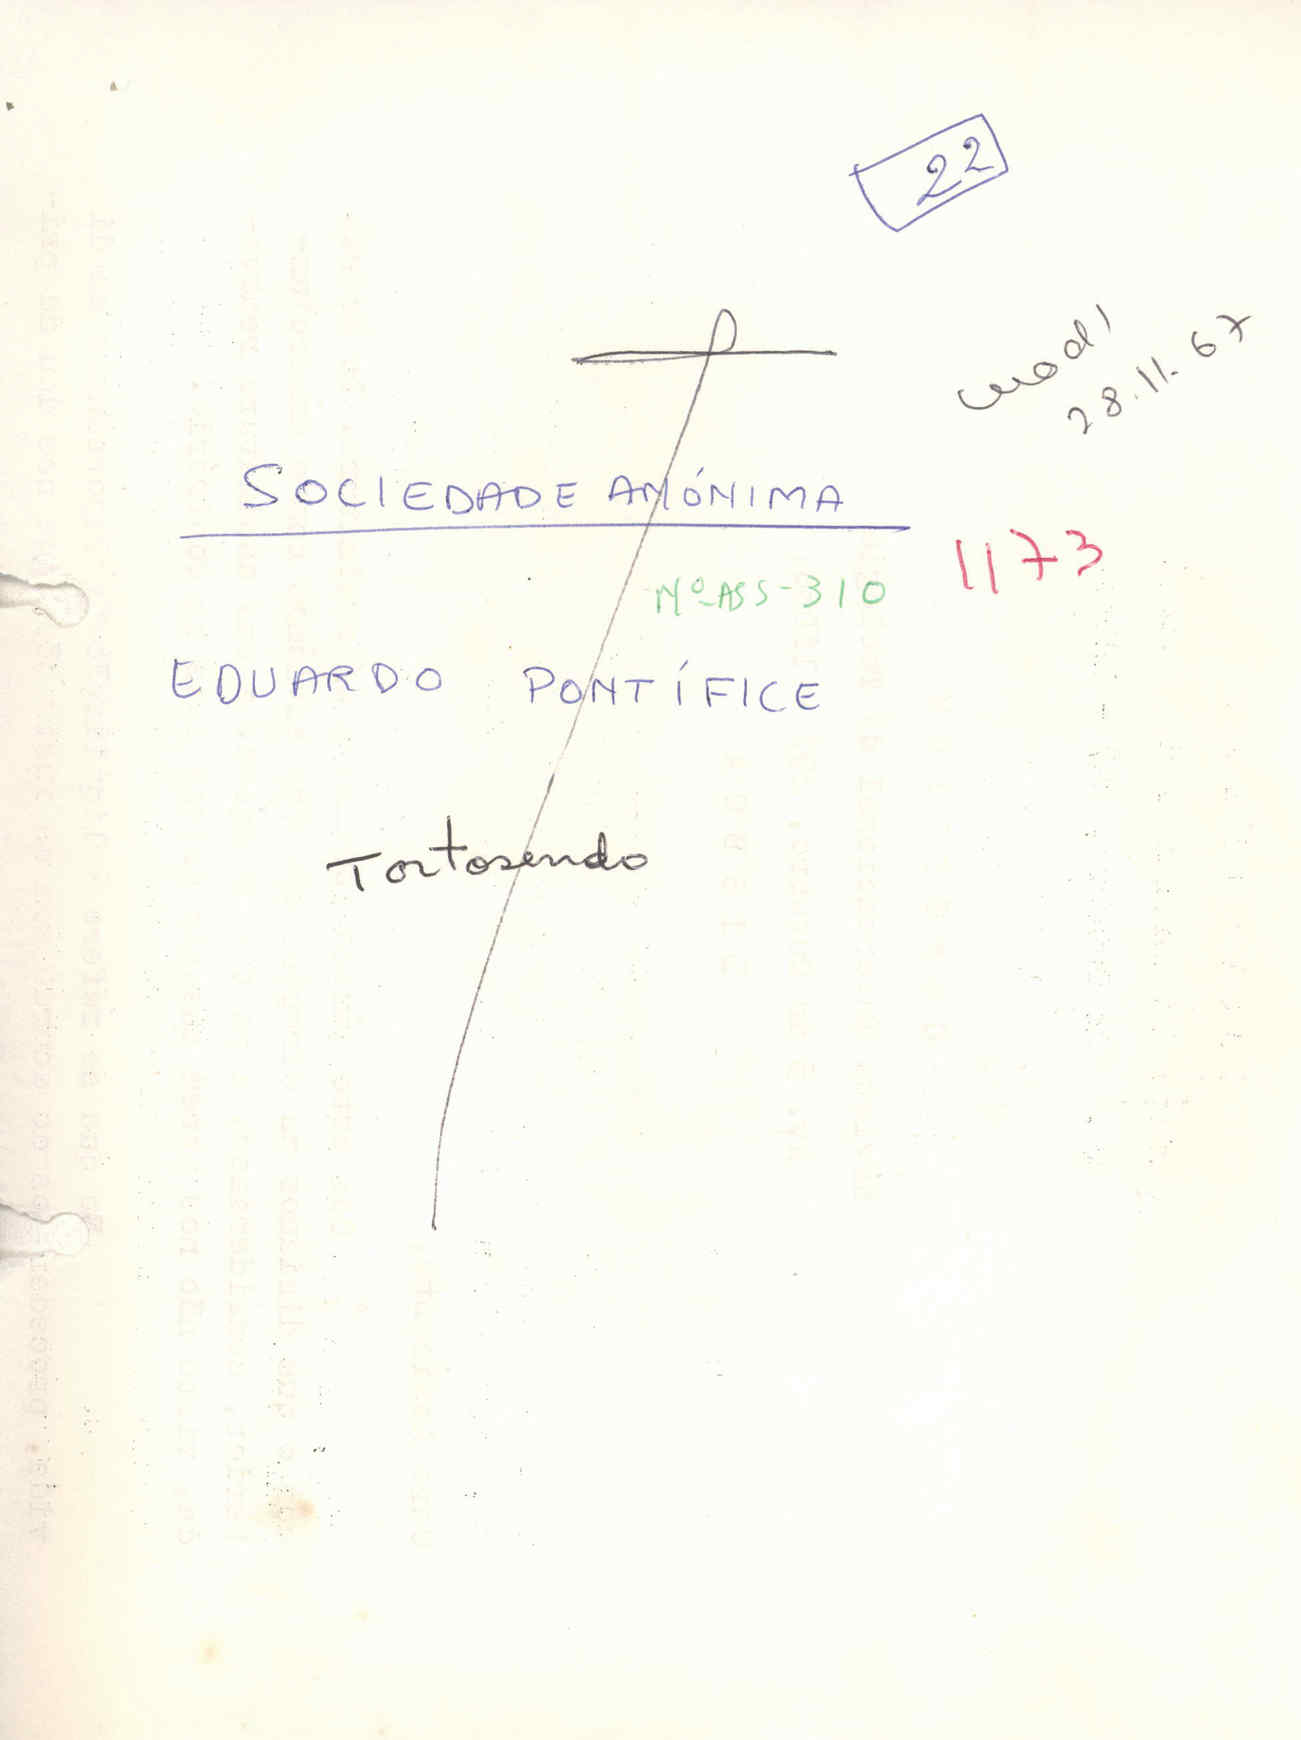 22
28.11.67
SOCIEDADE ANÓNIMA
1173
Nº ASS-310
EDUARDO PONTÍFICE
Tortosendo